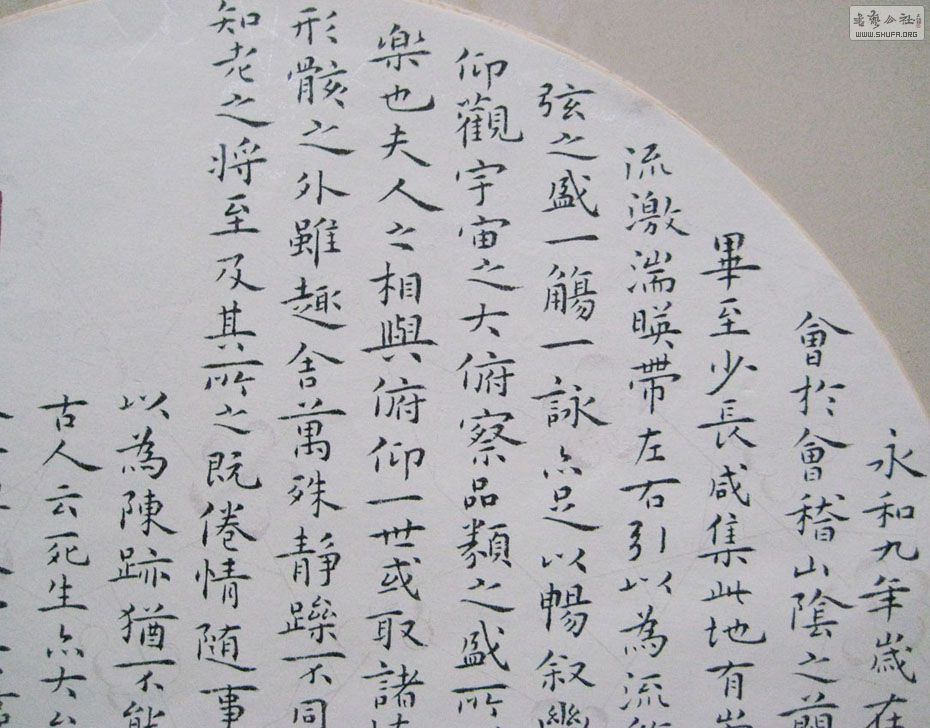 永和九年歲在
會於會稽山陰之蘭
畢至少長咸集此地有崇
流激湍暎帶左右引以為流觴
弦之盛一觴一詠亦足以暢叙幽
仰觀宇宙之大俯察品類之盛所
樂也夫人之相與俯仰一世或取諸懷
形骸之外雖趣舍萬殊靜躁不同
知老之將至及其所之既倦情随事
以為陳跡猶不能
古人云死生亦大矣
書藝公社
WWW.SHUFA.ORG